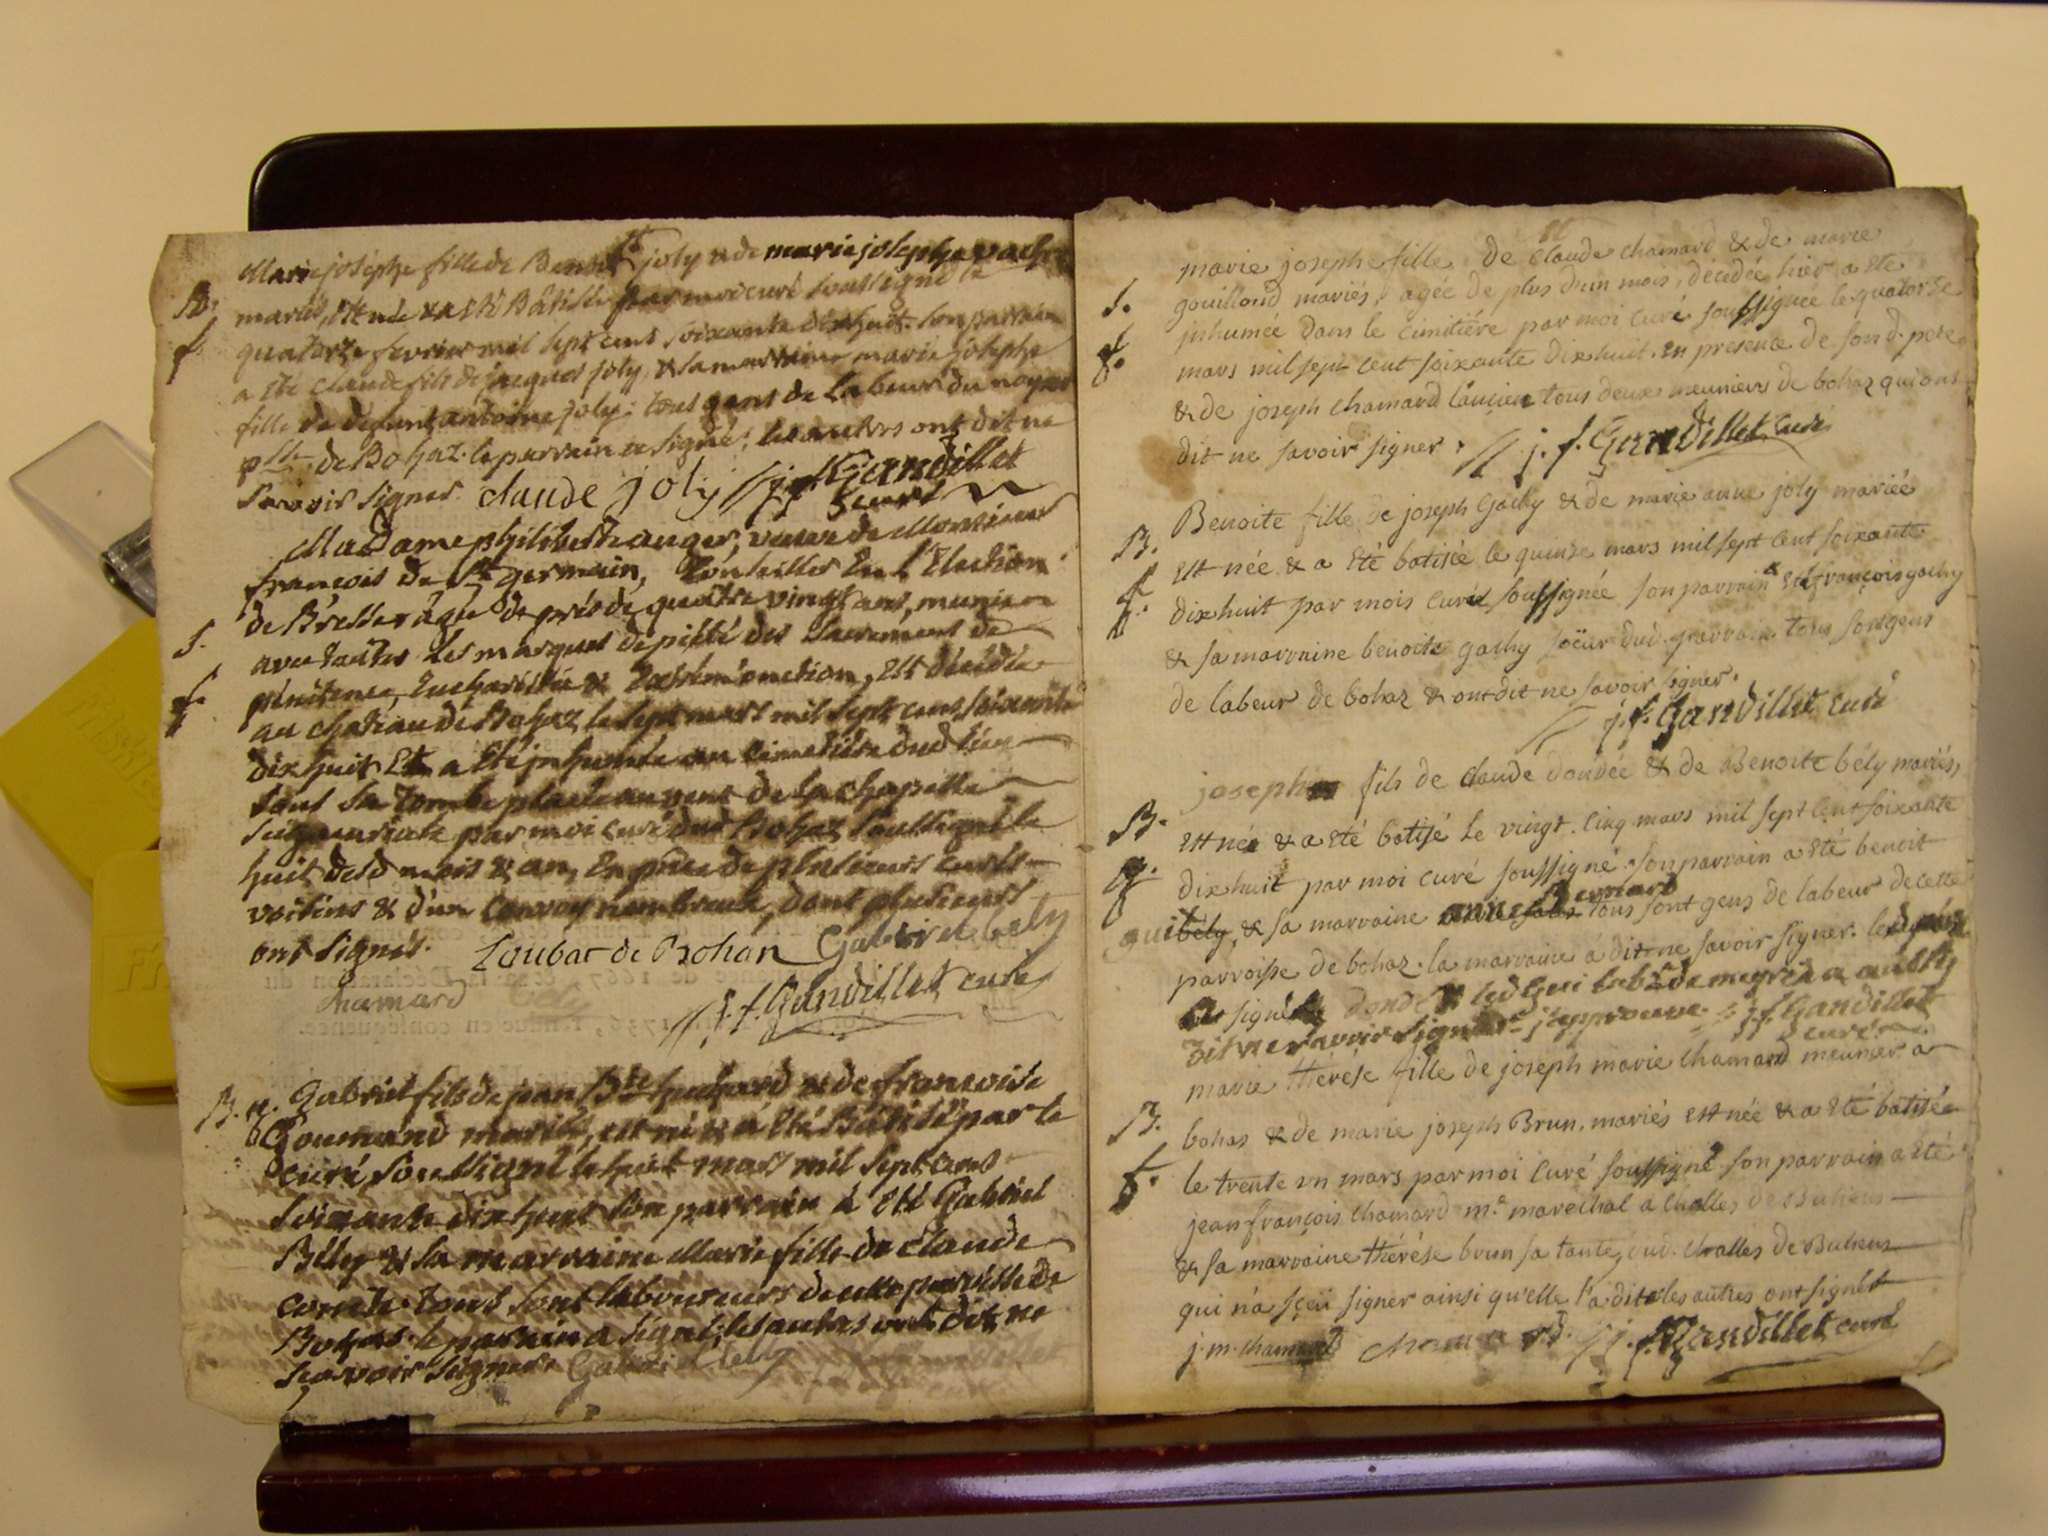 Marie joséphe fille de Benoit joly & de marie josephe vach
B.
mariés, est née & a été Bâtisée par moi curé soussigné le
f
quatorze fevrier mil sept cent soixante dix huit. son parrain
a été claude fils de jacques joly, & sa marraine marie josephe
fille de defunt antoine joly; tous gens de labeur du noyer
psse de Bohaz. le parrain a signé; les autres ont dit ne
sçavoir signer. claude joly j. f. Gandillet
curé
Madame philiberte auger, veuve de Monsieur
françois de St germain, Conseiller En l'Election
de Bresse agée de près de quatre vingt ans, munie
S.
avec toutes les marques de piété des sacrements de
f.
pénitence, Eucharistie & Extrême onction, est décédée
au chateau de Bohaz le sept mars mil sept cent soixante
dix huit Et a été inhumée au cimetière dud lieu
sous sa tombe placée au vent de la chapelle
seigneuriale par moi curé dud Bohaz soussigné le
huit desd mois & an, En pnce de plusieurs curés
voisins & d'un convoy nombreux, dont plusieurs
ont signés. Loubat de Bohan Gabriel bely
chamard j. f. Gandillet curé
B. Gabriel fils de jean Bte huchard & de françoise
g
Goumand mariés, est né & a été Bâtisé par le
curé soussigné le huit mars mil sept cent
soixante dix huit son parrain a été Gabriel
Bély & sa marraine Marie fille de claude
tous sont laboureurs de cette paroisse de
Bohas. le parrain a signé; les autres ont dit ne
sçavoir signer. Gabriel bely
marie josephe fille de claude chamard & de marie
S.
gouilloud mariés, agée de plus d'un mois, décédée hier a été
f.
inhumée dans le cimitiére par moi curé soussignée le quatorze
mars mil sept cent soixante dix huit. en presence de son d. pere
& de joseph chamard l'ancien tous deux meuniers de bohaz qui ont
dit ne savoir signer. j. f. Gandillet curé
Benoite fille de joseph Gachy & de marie anne joly mariée
B.
est née & a été batisée le quinze mars mil sept cent soixante
f.
dix huit par mois curé soussignée son parrain a été françois gachy
& sa marraine benoite gachy soëur dud. parrain. tous sont gens
de labeur de bohaz & ont dit ne savoir signer.
j. f. Gandillet curé
joseph fils de claude dondée & de Benoite bély mariés,
B.
est né & a été batisé le vingt. cinq mars mil sept cent soixante
g.
dix huit par moi curé soussigné. son parrain a été benoit
gui bely, & sa marraine anne Bernard tous sont gens de labeur de cette
parroisse de bohaz. la marraine a dit ne savoir signer. led pere
a signé dondé led gui lab. de meyriat a aussi
dit ne savoir signer j'approuve. j. f. Gandillet
curé
marie thérése fille de joseph marie chamard meunier a
B.
bohas & de marie joseph Brun, mariés est née & a été batisée
f.
le trente un mars par moi curé soussigné son parrain a été
jean françois chamard me. marechal a challes de Buhens
& sa marraine thérése brun sa tante, dud. challes de Buhens
qui n'a sçeü signer ainsi qu'elle l'a dit les autres ont signés
j. m. chamard chamard. j. f. Gandillet curé